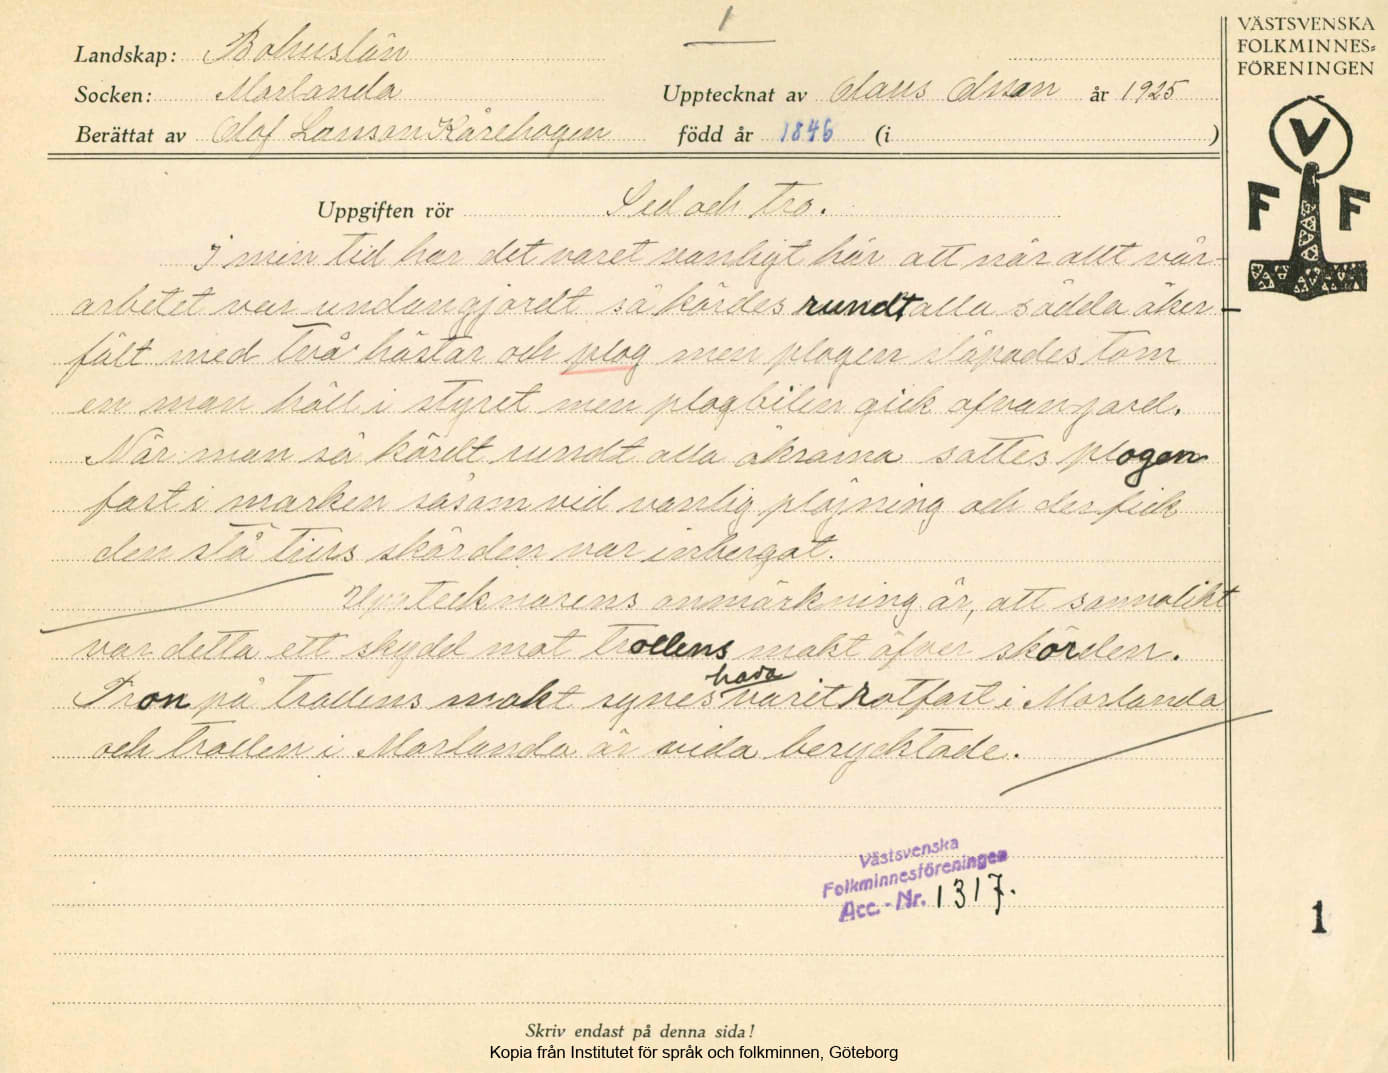 1
VÄSTSVENSKA
FOLKMINNES=
FÖRENINGEN
V
F F
Landskap: Bohuslän
Socken: Morlanda
Upptecknat av Olaus Olsson år 1925
Berättat av Olof Larsson Kårehogen född år 1846 (i )
Uppgiften rör Sed och tro.
I min tid har det varet vanligt här att när allt vår-
arbetet var undangjordt så kördes rundt alla sådda åker-
fält med två hästar och plog men plogen släpades tom
en man höll i styret men plogbilen gick ofvan jord.
När man så kördt rundt alla åkrarna sattes plogen
fast i marken såsom vid vanlig plöjning och der fick
den stå tills skörden var inbergat.
Upptecknarens anmärkning är, att sannolikt
var detta ett skydd mot trollens makt öfver skörden.
Tron på trollens makt synes hava varit rotfast i Morlanda
och trollen i Morlanda är vida beryktade.
Västsvenska
Folkminnesföreningen
Acc.-Nr. 1317.
1
Skriv endast på denna sida!
Kopia från Institutet för språk och folkminnen, Göteborg